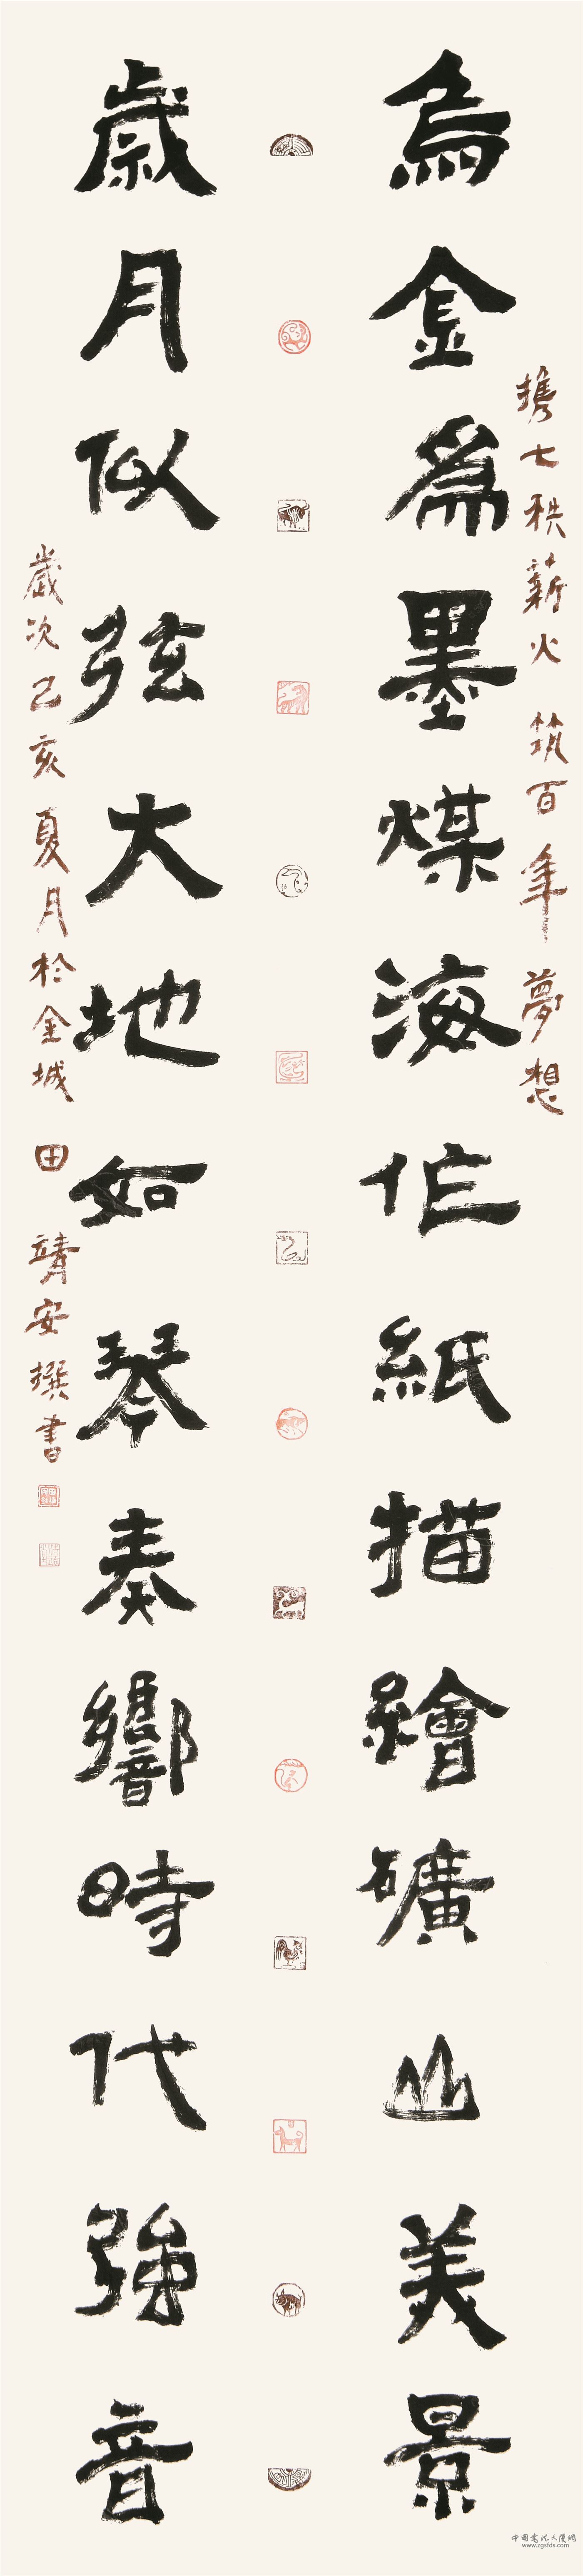 攜七秩薪火 筑百年夢想
烏金為墨煤海作紙描繪礦山美景
歲月似弦大地如琴奏響時代強音
歲次己亥夏月於金城 田靖安撰書
中国書法人隨網
www.zgsfds.com